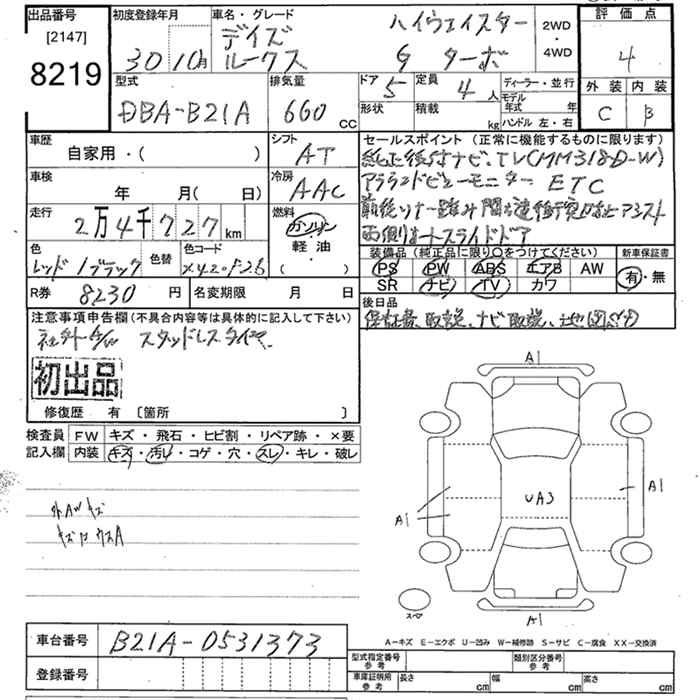 出品番号
[2147]
8219
初度登録年月
30 10月
車名・グレード
デイズ
ルークス
ハイウェイスター
G ターボ
2WD
・
4WD
評価点
4
外装 内装
C B
型式
DBA-B21A
排気量
660 CC
ドア 5
定員 4 人
形状
積載 kg
ディーラー・並行
モデル年式 年
ハンドル 左・右
車歴
自家用・( )
シフト
AT
車検
年 月( 日)
冷房
AAC
走行
2万4千727km
燃料
ガソリン
軽油
・
( )
色
レッド/ブラック
色替
色コード
R券 8230 円
名変期限 月 日
セールスポイント (正常に機能するものに限ります)
純正後付ナビ、TV(MM318D-W)
アラウンドビューモニター ETC
両側オートスライドドア
装備品 (純正品に限り○をつけてください)
PS PW ABS エアB AW
SR ナビ TV カワ
新車保証書
有・無
後日品
保証書、取説、ナビ取説、
注意事項申告欄(不具合内容等は具体的に記入して下さい)
社外AW スタッドレスタイヤ
初出品
修復歴 有 〔箇所 〕
検査員
記入欄
FW キズ・飛石・ヒビ割・リペア跡・×要
内装 キズ・汚レ・コゲ・穴・スレ・キレ・破レ
外AWキズ
A1
A1
A1
UA3
A1
スペア
A-キズ E-エクボ U-凹み W-補修跡 S-サビ C-腐食 XX-交換済
車台番号 B21A-0531373
登録番号
型式指定番号
参考
類別区分番号
参考
車庫証明用
参考
長さ cm
幅 cm
高さ cm